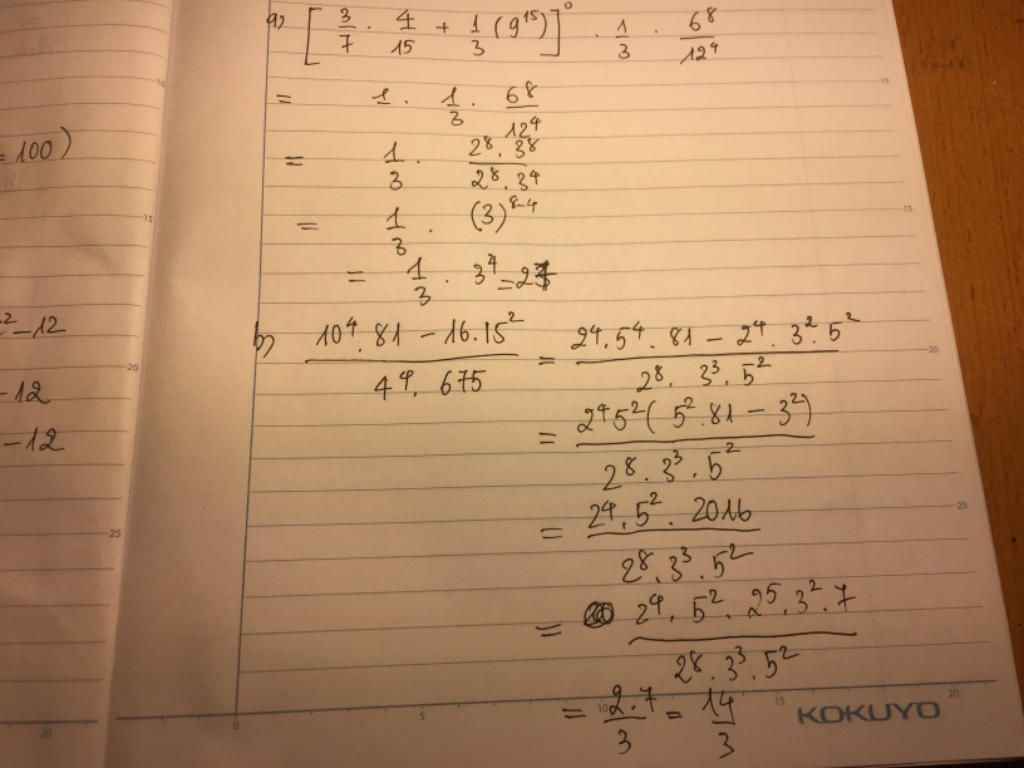 a) [ 3/7 . 4/15 + 1/3 (9^15) ]^0 . 1/3 . 6^8/12^4
= 1 . 1/3 . 6^8/12^4
= 1/3 . 2^8 . 3^8 / 2^8 . 3^4
= 1/3 . (3)^8-4
= 1/3 . 3^4 = 27
b) 10^4 . 81 - 16 . 15^2 / 4^4 . 675 = 2^4 . 5^4 . 81 - 2^4 . 3^2 . 5^2 / 2^8 . 3^3 . 5^2
= 2^4 5^2 ( 5^2 . 81 - 3^2 ) / 2^8 . 3^3 . 5^2
= 2^4 . 5^2 . 2016 / 2^8 . 3^3 . 5^2
= 2^4 . 5^2 . 2^5 . 3^2 . 7 / 2^8 . 3^3 . 5^2
= 2 . 7 / 3 = 14/3
= 100)
^2 - 12
- 12
- 12
10
15
20
25
20
10
15
20
25
0
5
10
15
20
KOKUYO